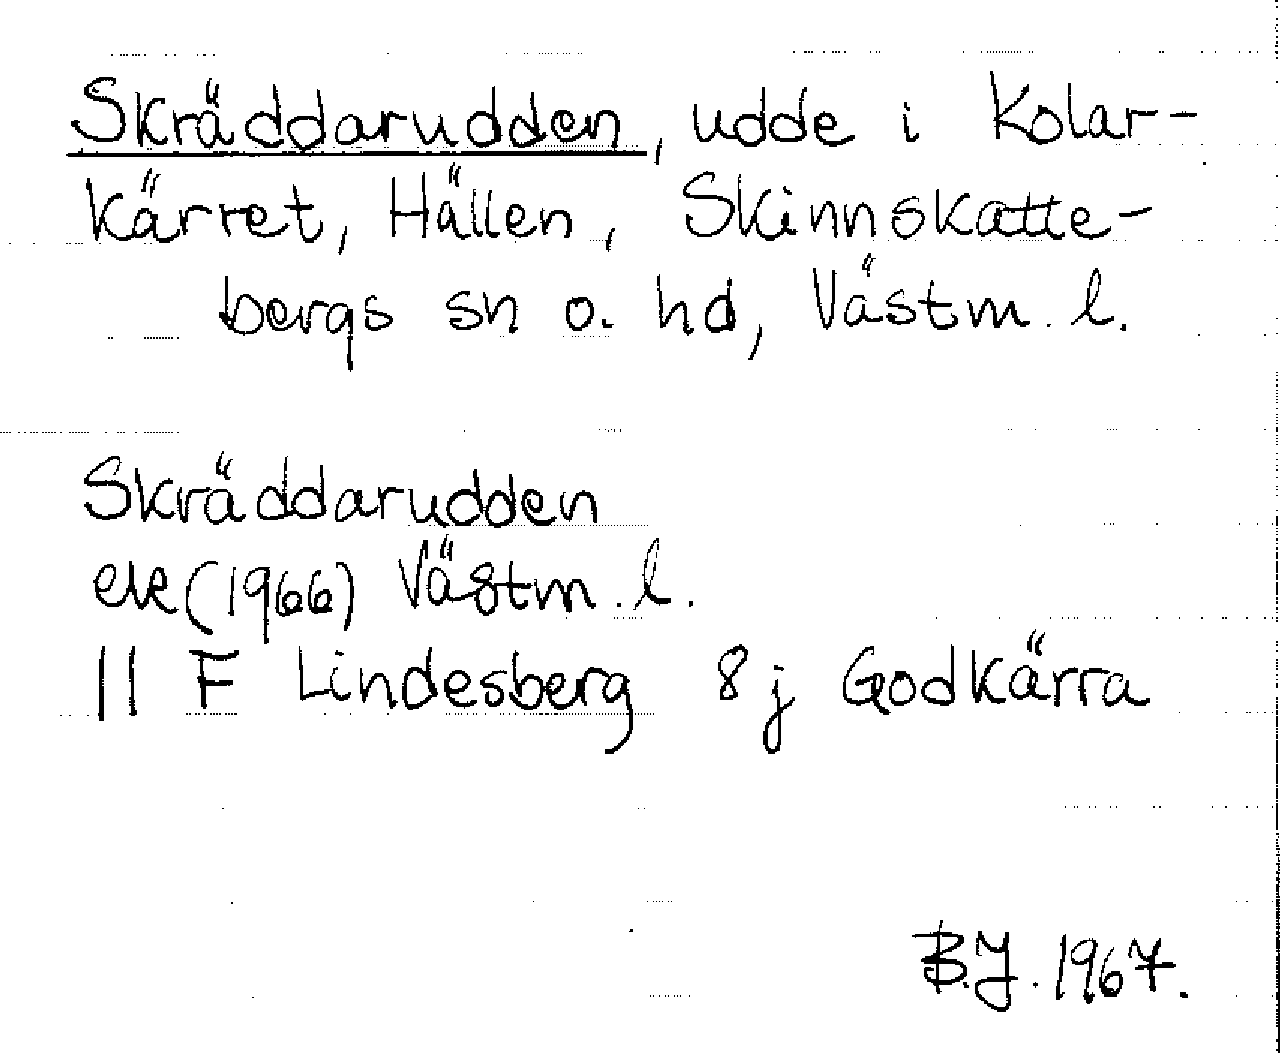 Skräddarudden, udde i Kolar-
kärret, Hällen, Skinnskatte-
bergs sn o. hd, Västm. l.
Skräddarudden
ek (1966) Västm. l.
11 F Lindesberg 8 j Godkärra
B.J. 1967.